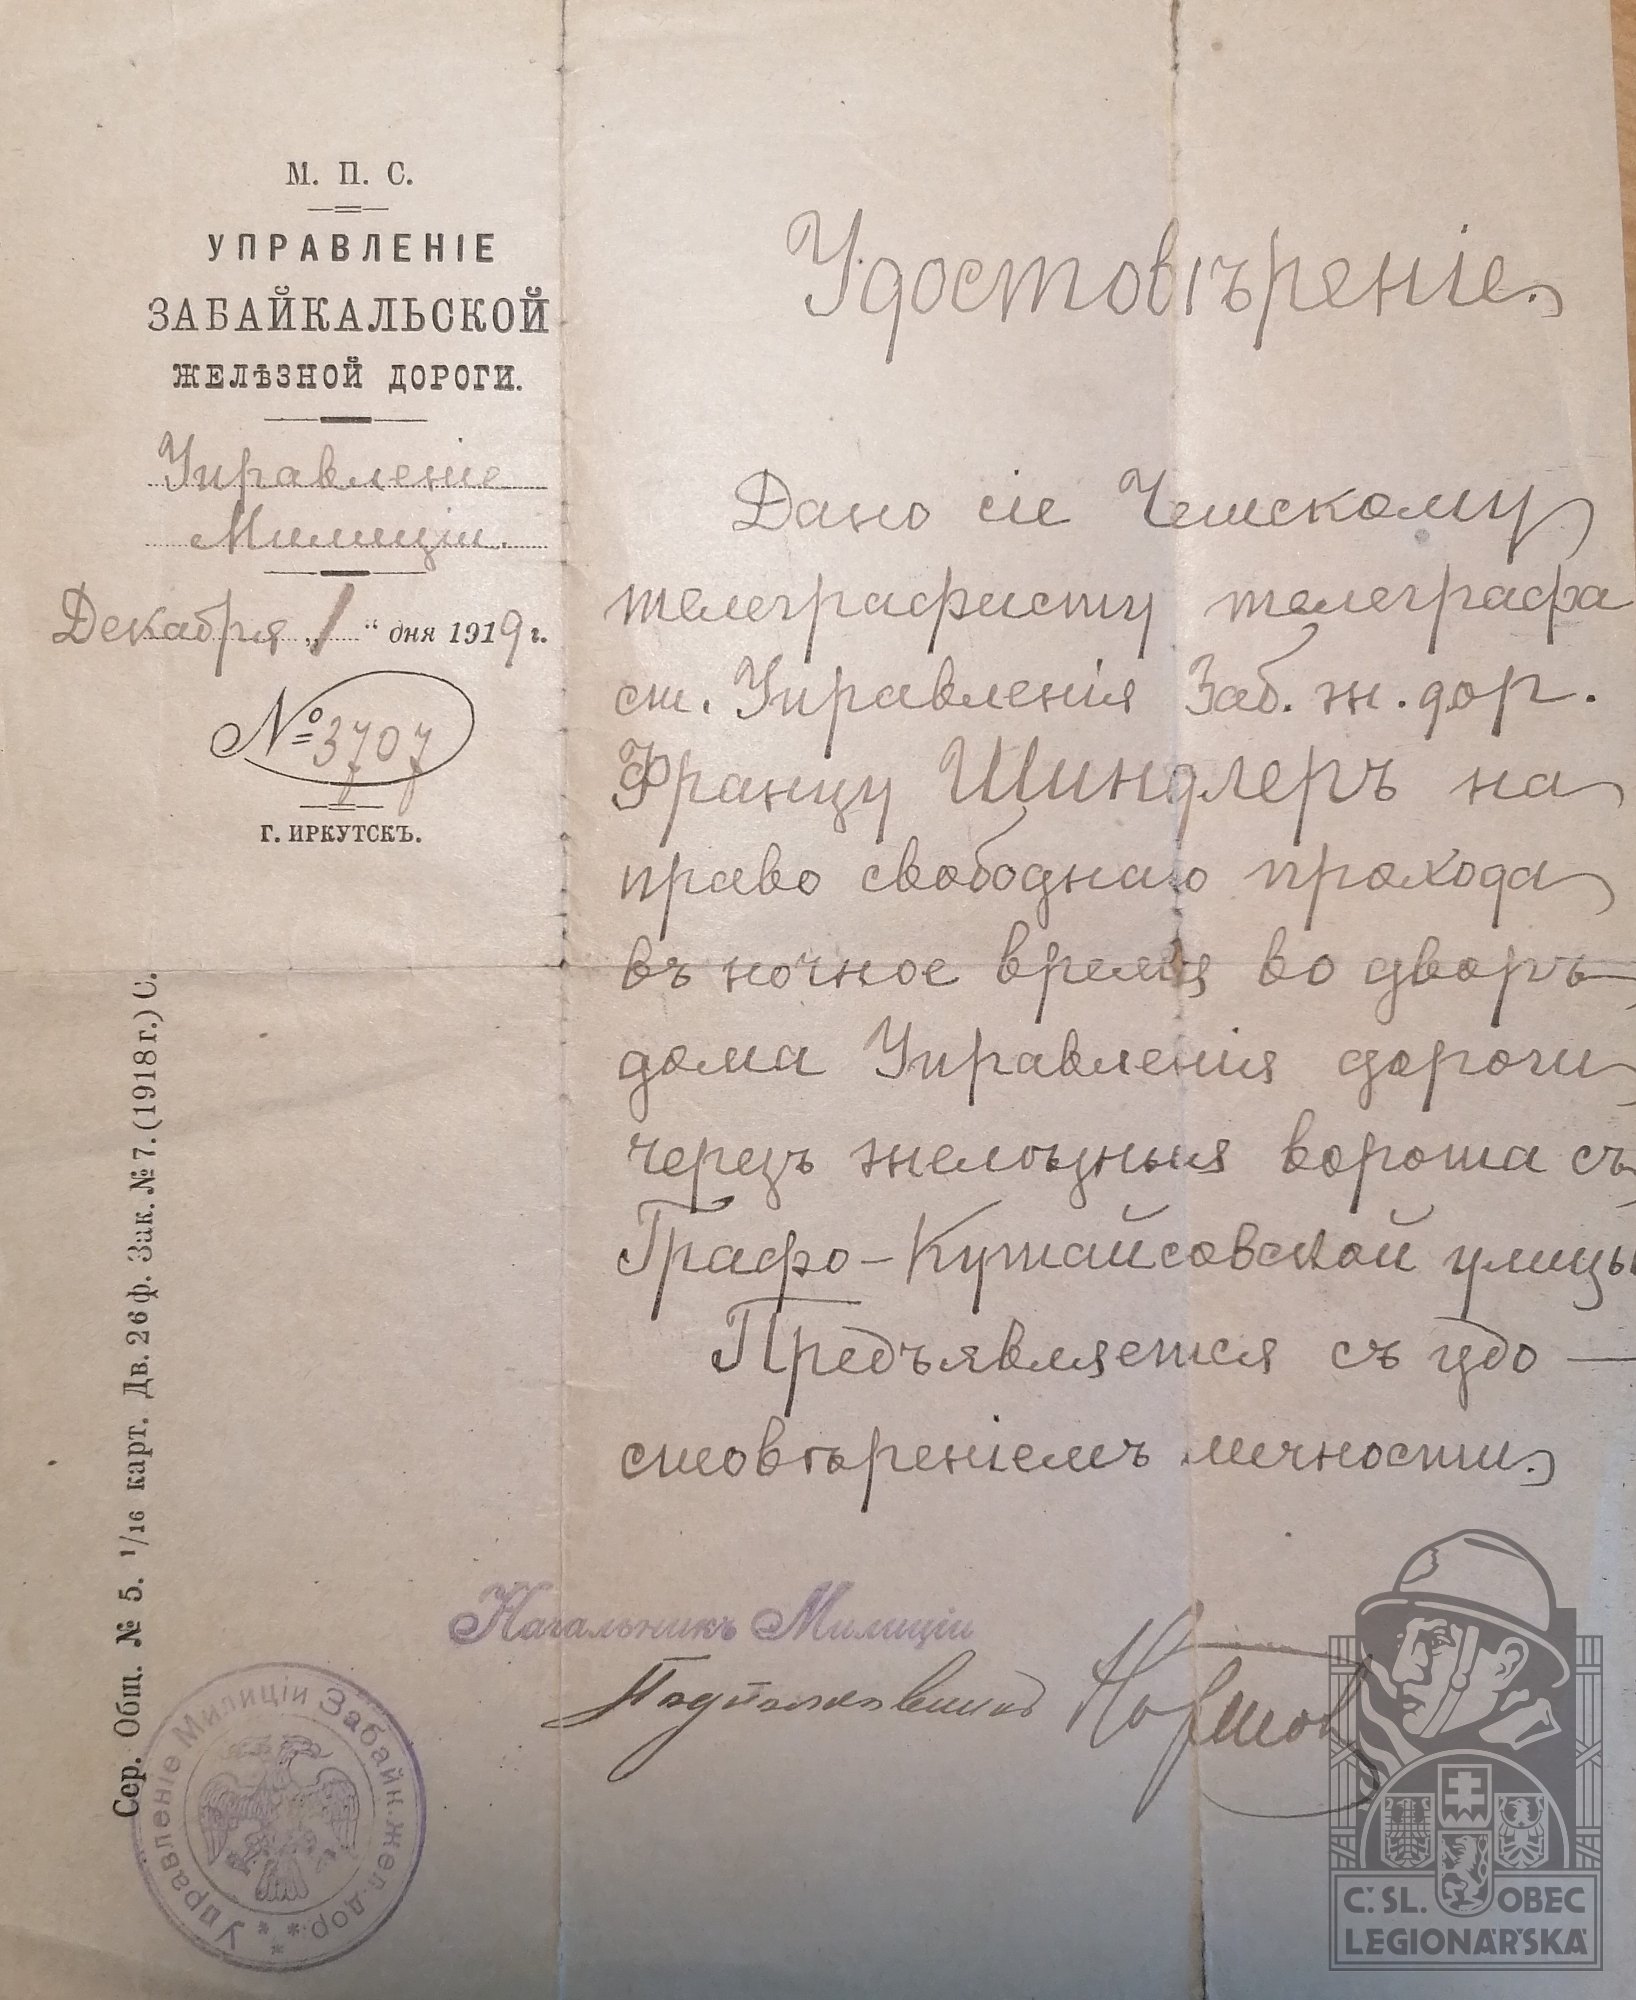 М. П. С.
УПРАВЛЕНІЕ
ЗАБАЙКАЛЬСКОЙ
ЖЕЛѢЗНОЙ ДОРОГИ.
Управленіе
Милиціи.
Декабря „1“ дня 1919 г.
№ 3707
Г. ИРКУТСКЪ.
Сер. Общ. № 5. 1/16 карт. Дв. 26 ф. Зак. № 7. (1918 г.) С.
Удостовѣреніе.
Дано сіе Чешскому
телеграфисту телеграфа
ст. Управленія Заб. ж. дор.
Францу Шиндлеръ на
право свободнаго прохода
въ ночное время во дворъ
дома Управленія дороги
черезъ желѣзныя ворота съ
Графо-Кутайсовской улицы
Предъявляется съ удо-
стовѣреніемъ личности.
Начальникъ Милиціи
Подполковникъ
Управленіе Милиціи Забайк. жел. дор.
Č. SL. OBEC
LEGIONÁŘSKÁ